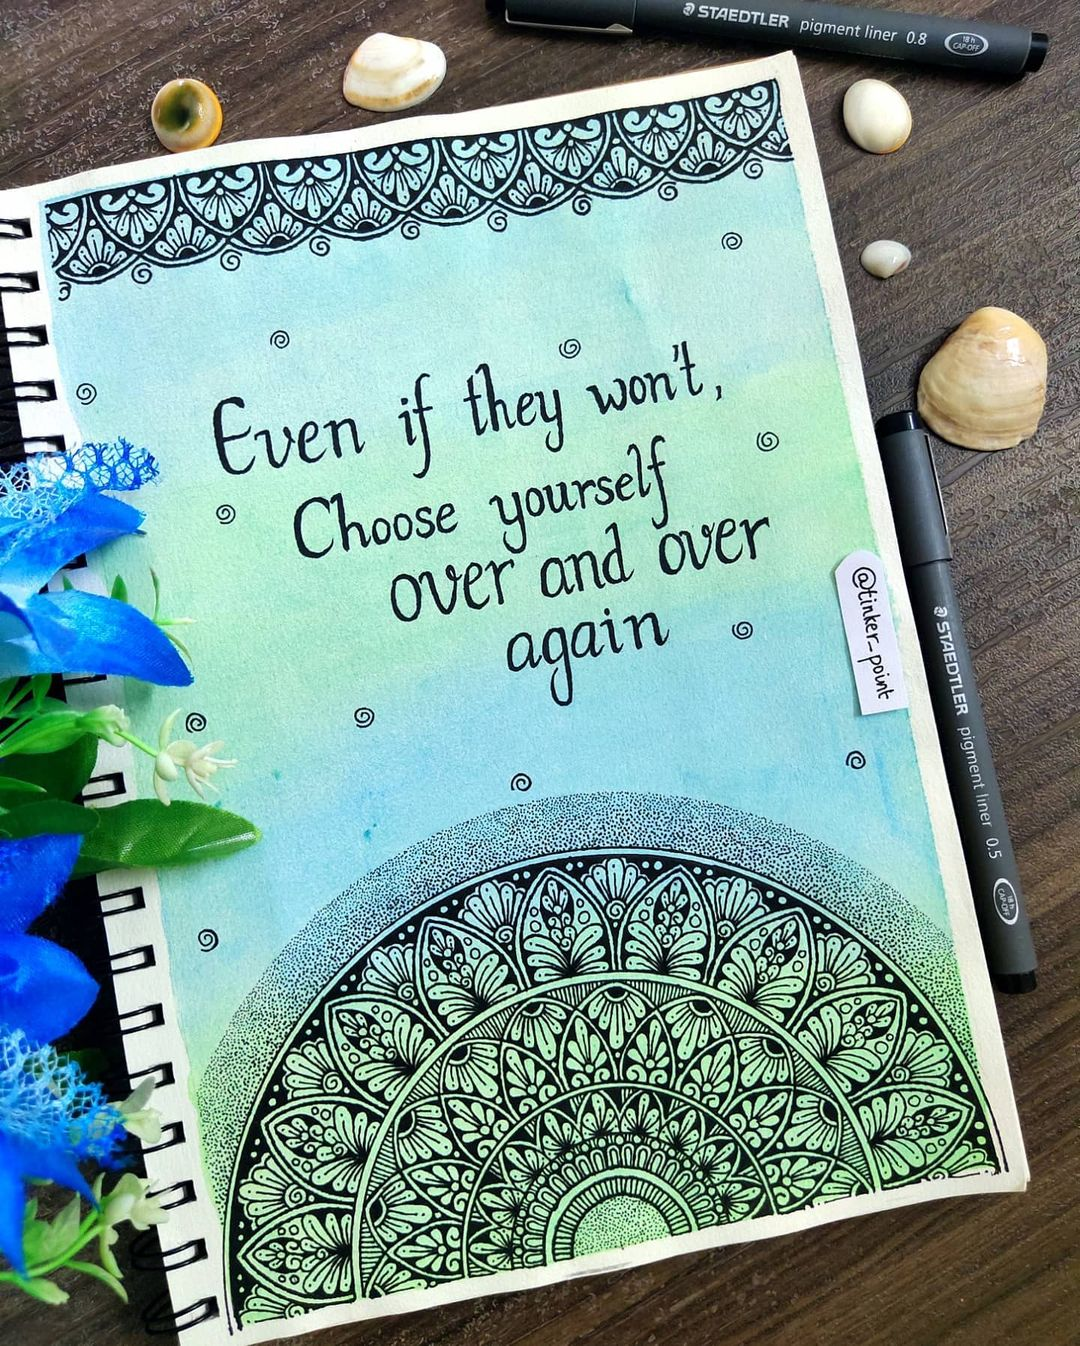 STAEDTLER pigment liner 0.8 18 h CAP-OFF
Even if they won't,
Choose yourself
over and over
again
@tinker_point
STAEDTLER pigment liner 0.5 18 h CAP-OFF